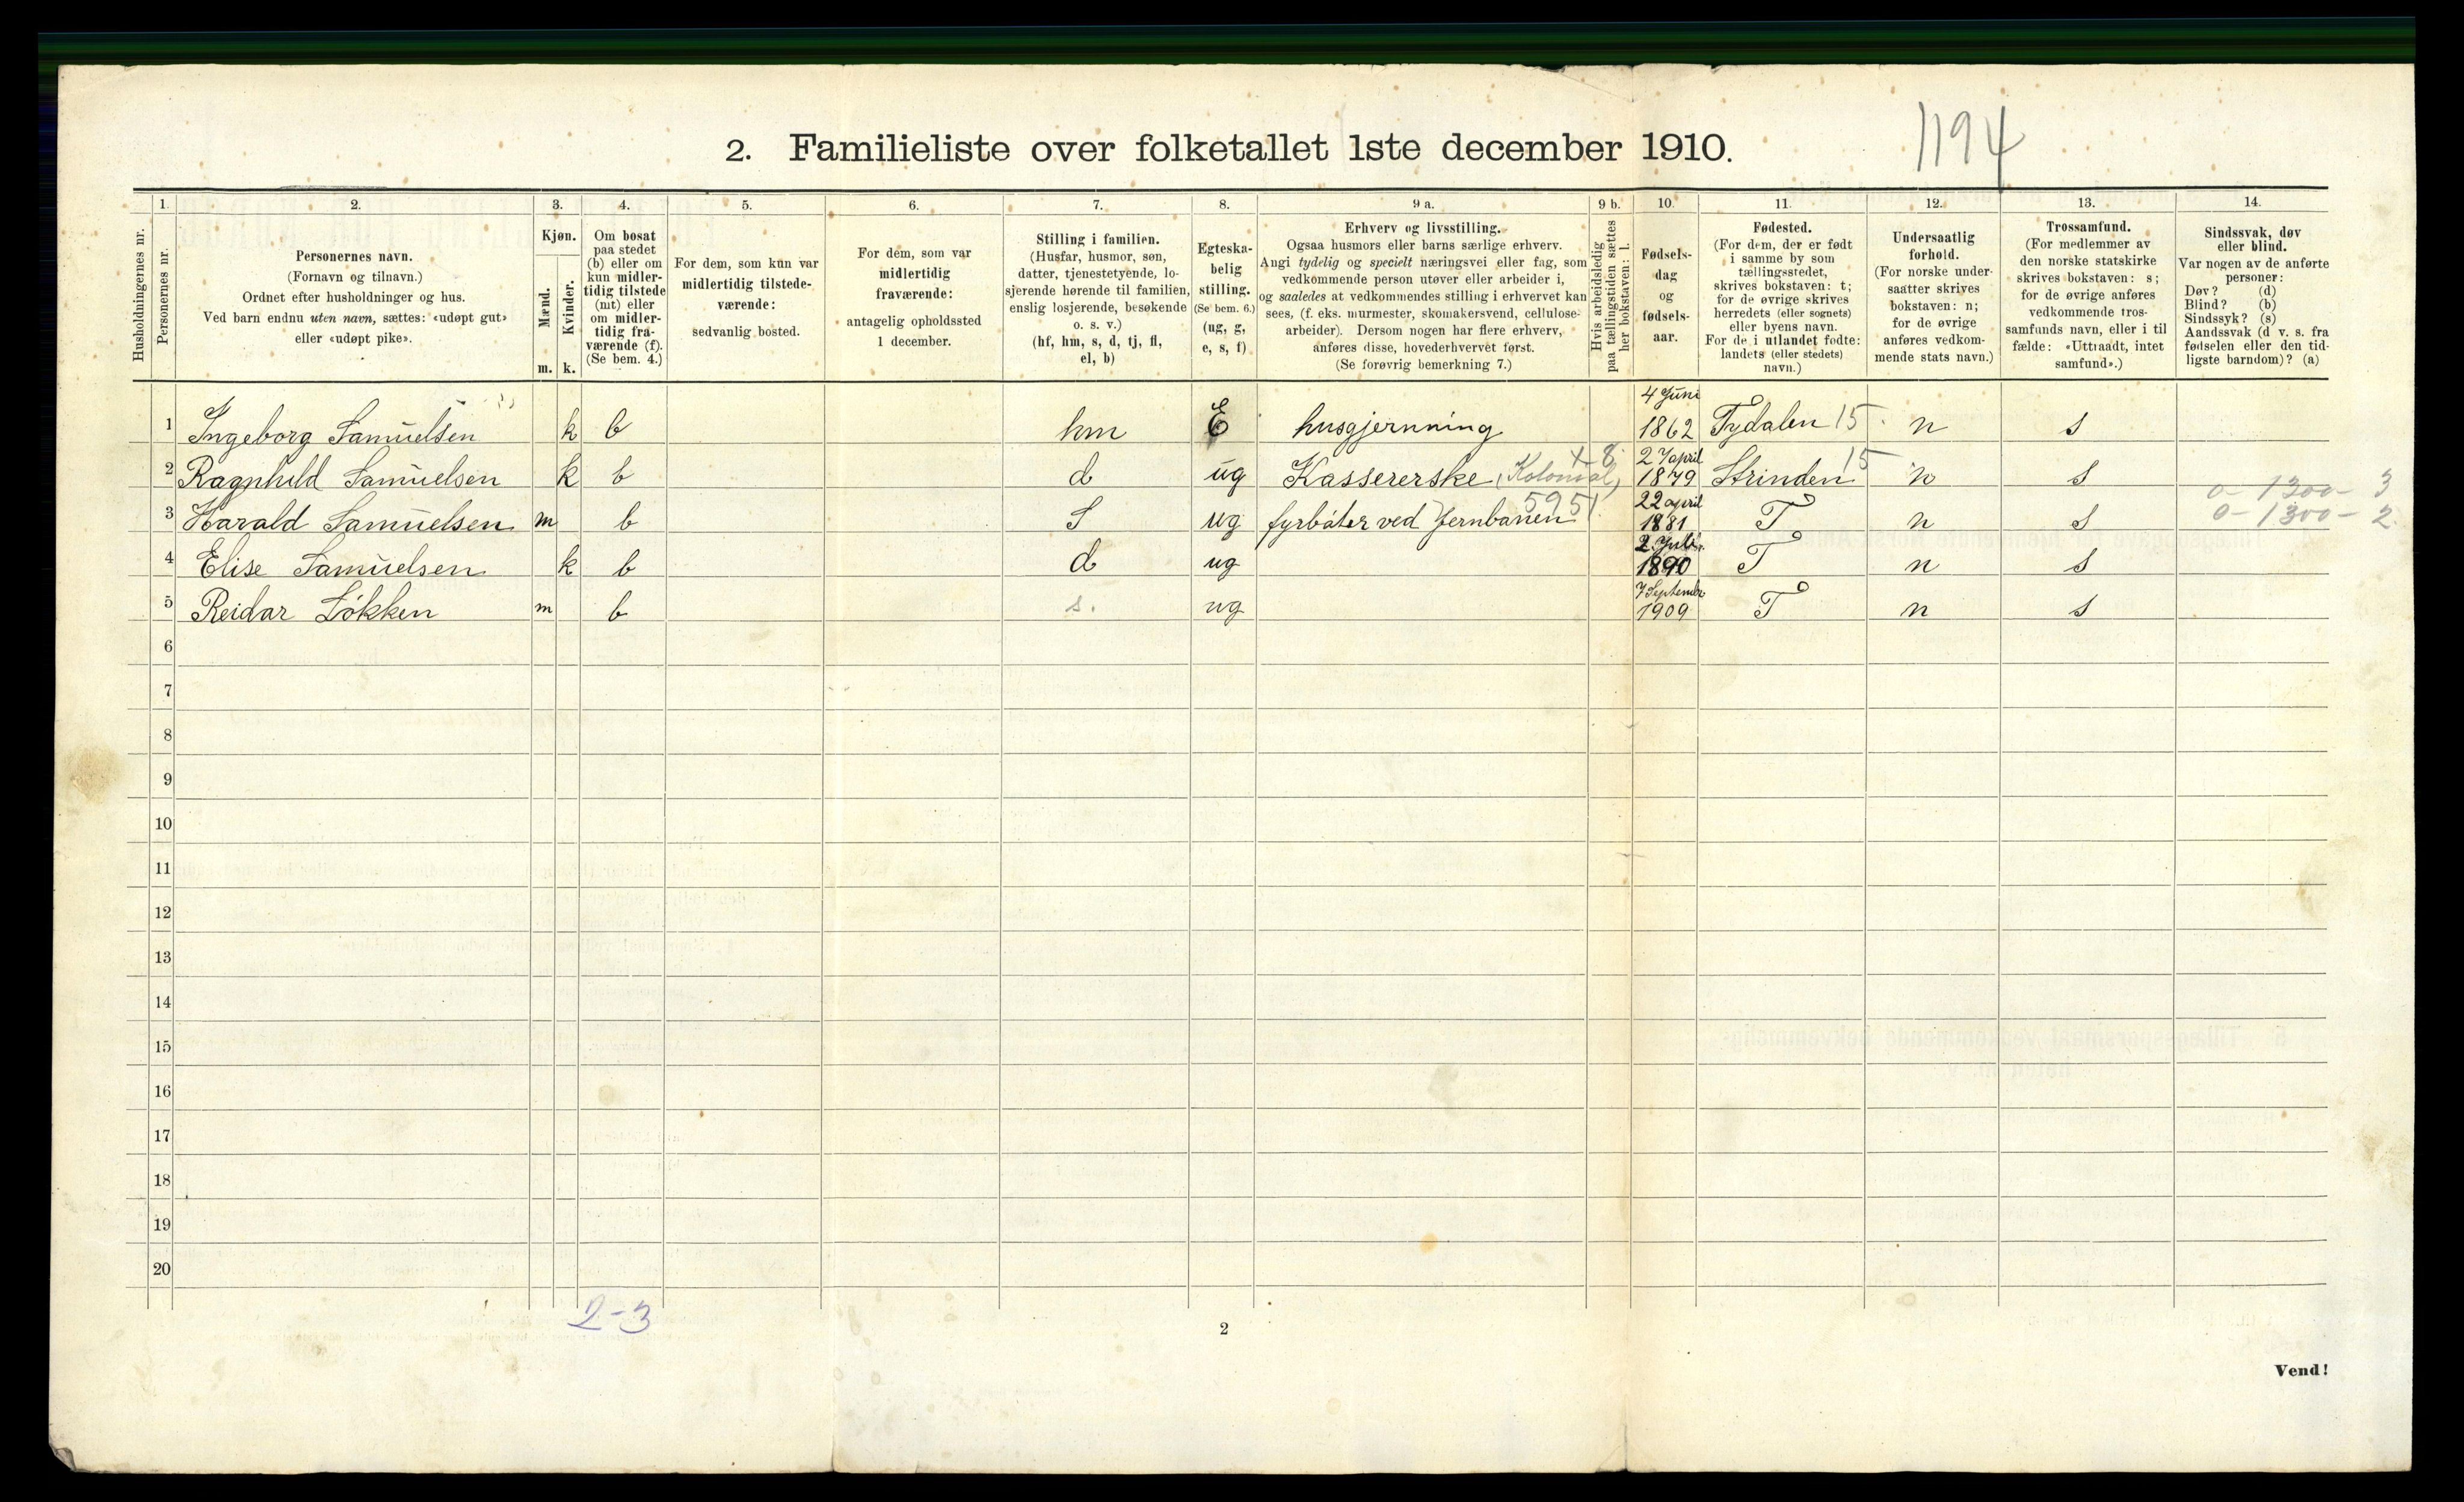 1194
2. Familieliste over folketallet 1ste december 1910.
Husholdningernes nr.
1.
Personernes nr.
2.
Personernes navn.
(Fornavn og tilnavn.)
Ordnet efter husholdninger og hus.
Ved barn endnu uten navn, sættes: «udøpt gut»
eller «udøpt pike».
3.
Kjøn.
Mænd.
Kvinder.
m. k.
4.
Om bosat
paa stedet
(b) eller om
kun midler-
tidig tilstede
(mt) eller
om midler-
tidig fra-
værende (f).
(Se bem. 4.)
5.
For dem, som kun var
midlertidig tilstede-
værende:
sedvanlig bosted.
6.
For dem, som var
midlertidig
fraværende:
antagelig opholdssted
1 december.
7.
Stilling i familien.
(Husfar, husmor, søn,
datter, tjenestetyende, lo-
sjerende hørende til familien,
enslig losjerende, besøkende
o. s. v.)
(hf, hm, s, d, tj, fl,
el, b)
8.
Egteska-
belig
stilling.
(Se bem. 6.)
(ug, g,
e, s, f)
9 a.
Erhverv og livsstilling.
Ogsaa husmors eller barns særlige erhverv.
Angi tydelig og specielt næringsvei eller fag, som
vedkommende person utøver eller arbeider i,
og saaledes at vedkommendes stilling i erhvervet kan
sees, (f. eks. murmester, skomakersvend, cellulose-
arbeider). Dersom nogen har flere erhverv,
anføres disse, hovederhvervet først.
(Se forøvrig bemerkning 7.)
9 b.
Hvis arbeidsledig
paa tællingstiden sættes
her bokstaven: l.
10.
Fødsels-
dag
og
fødsels-
aar.
11.
Fødested.
(For dem, der er født
i samme by som
tællingsstedet,
skrives bokstaven: t;
for de øvrige skrives
herredets (eller sognets)
eller byens navn.
For de i utlandet fødte:
landets (eller stedets)
navn.)
12.
Undersaatlig
forhold.
(For norske under-
saatter skrives
bokstaven: n;
for de øvrige
anføres vedkom-
mende stats navn.)
13.
Trossamfund.
(For medlemmer av
den norske statskirke
skrives bokstaven: s;
for de øvrige anføres
vedkommende tros-
samfunds navn, eller i til
fælde: «Uttraadt, intet
samfund».)
14.
Sindssvak, døv
eller blind.
Var nogen av de anførte
personer:
Døv? (d)
Blind? (b)
Sindssyk? (s)
Aandssvak (d v. s. fra
fødselen eller den tid-
ligste barndom)? (a)
1 Ingeborg Samuelsen k b hm E husgjernning 4 Juni 1862 Tydalen 15 n s
2 Ragnhild Samuelsen k b d ug Kassererske (Kolonial) x-8 27 april 1879 Strinden 15 n s 0-1300-3
3 Harald Samuelsen m b S ug fyrbøter ved Jernbanen 5951 22 april 1881 T n s 0-1300-2
4 Elise Samuelsen k b d ug 2 Juli 1890 T n s
5 Reidar Løkken m b s. ug 7 September 1909 T n s
6
7
8
9
10
11
12
13
14
15
16
17
18
19
20
2-3
2
Vend!